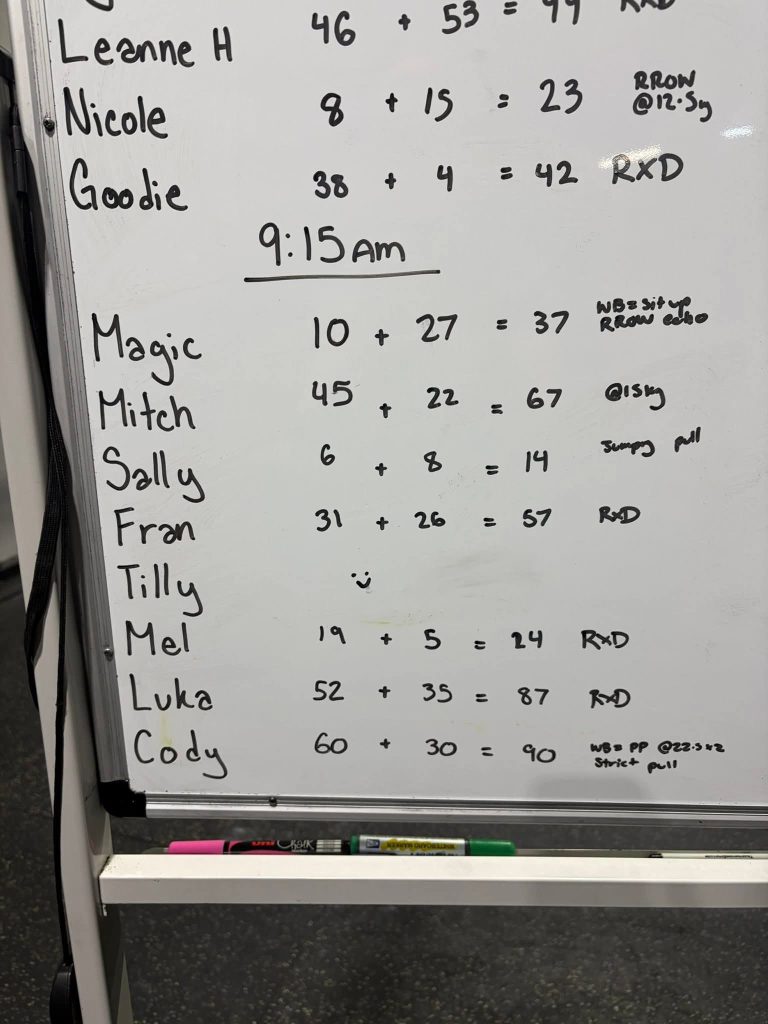 Leanne H 46 + 53 = 99 RXD
Nicole 8 + 15 = 23 RROW @12.5g
Goodie 38 + 4 = 42 RXD
9:15am
Magic 10 + 27 = 37 WB=Sit up RROW echo
Mitch 45 + 22 = 67 @15kg
Sally 6 + 8 = 14 Jumpg pull
Fran 31 + 26 = 57 RxD
Tilly
Mel 19 + 5 = 24 RxD
Luka 52 + 35 = 87 RxD
Cody 60 + 30 = 90 WB= PP @22.5x2 Strict pull
uni Chalk
WHITEBOARD MARKER